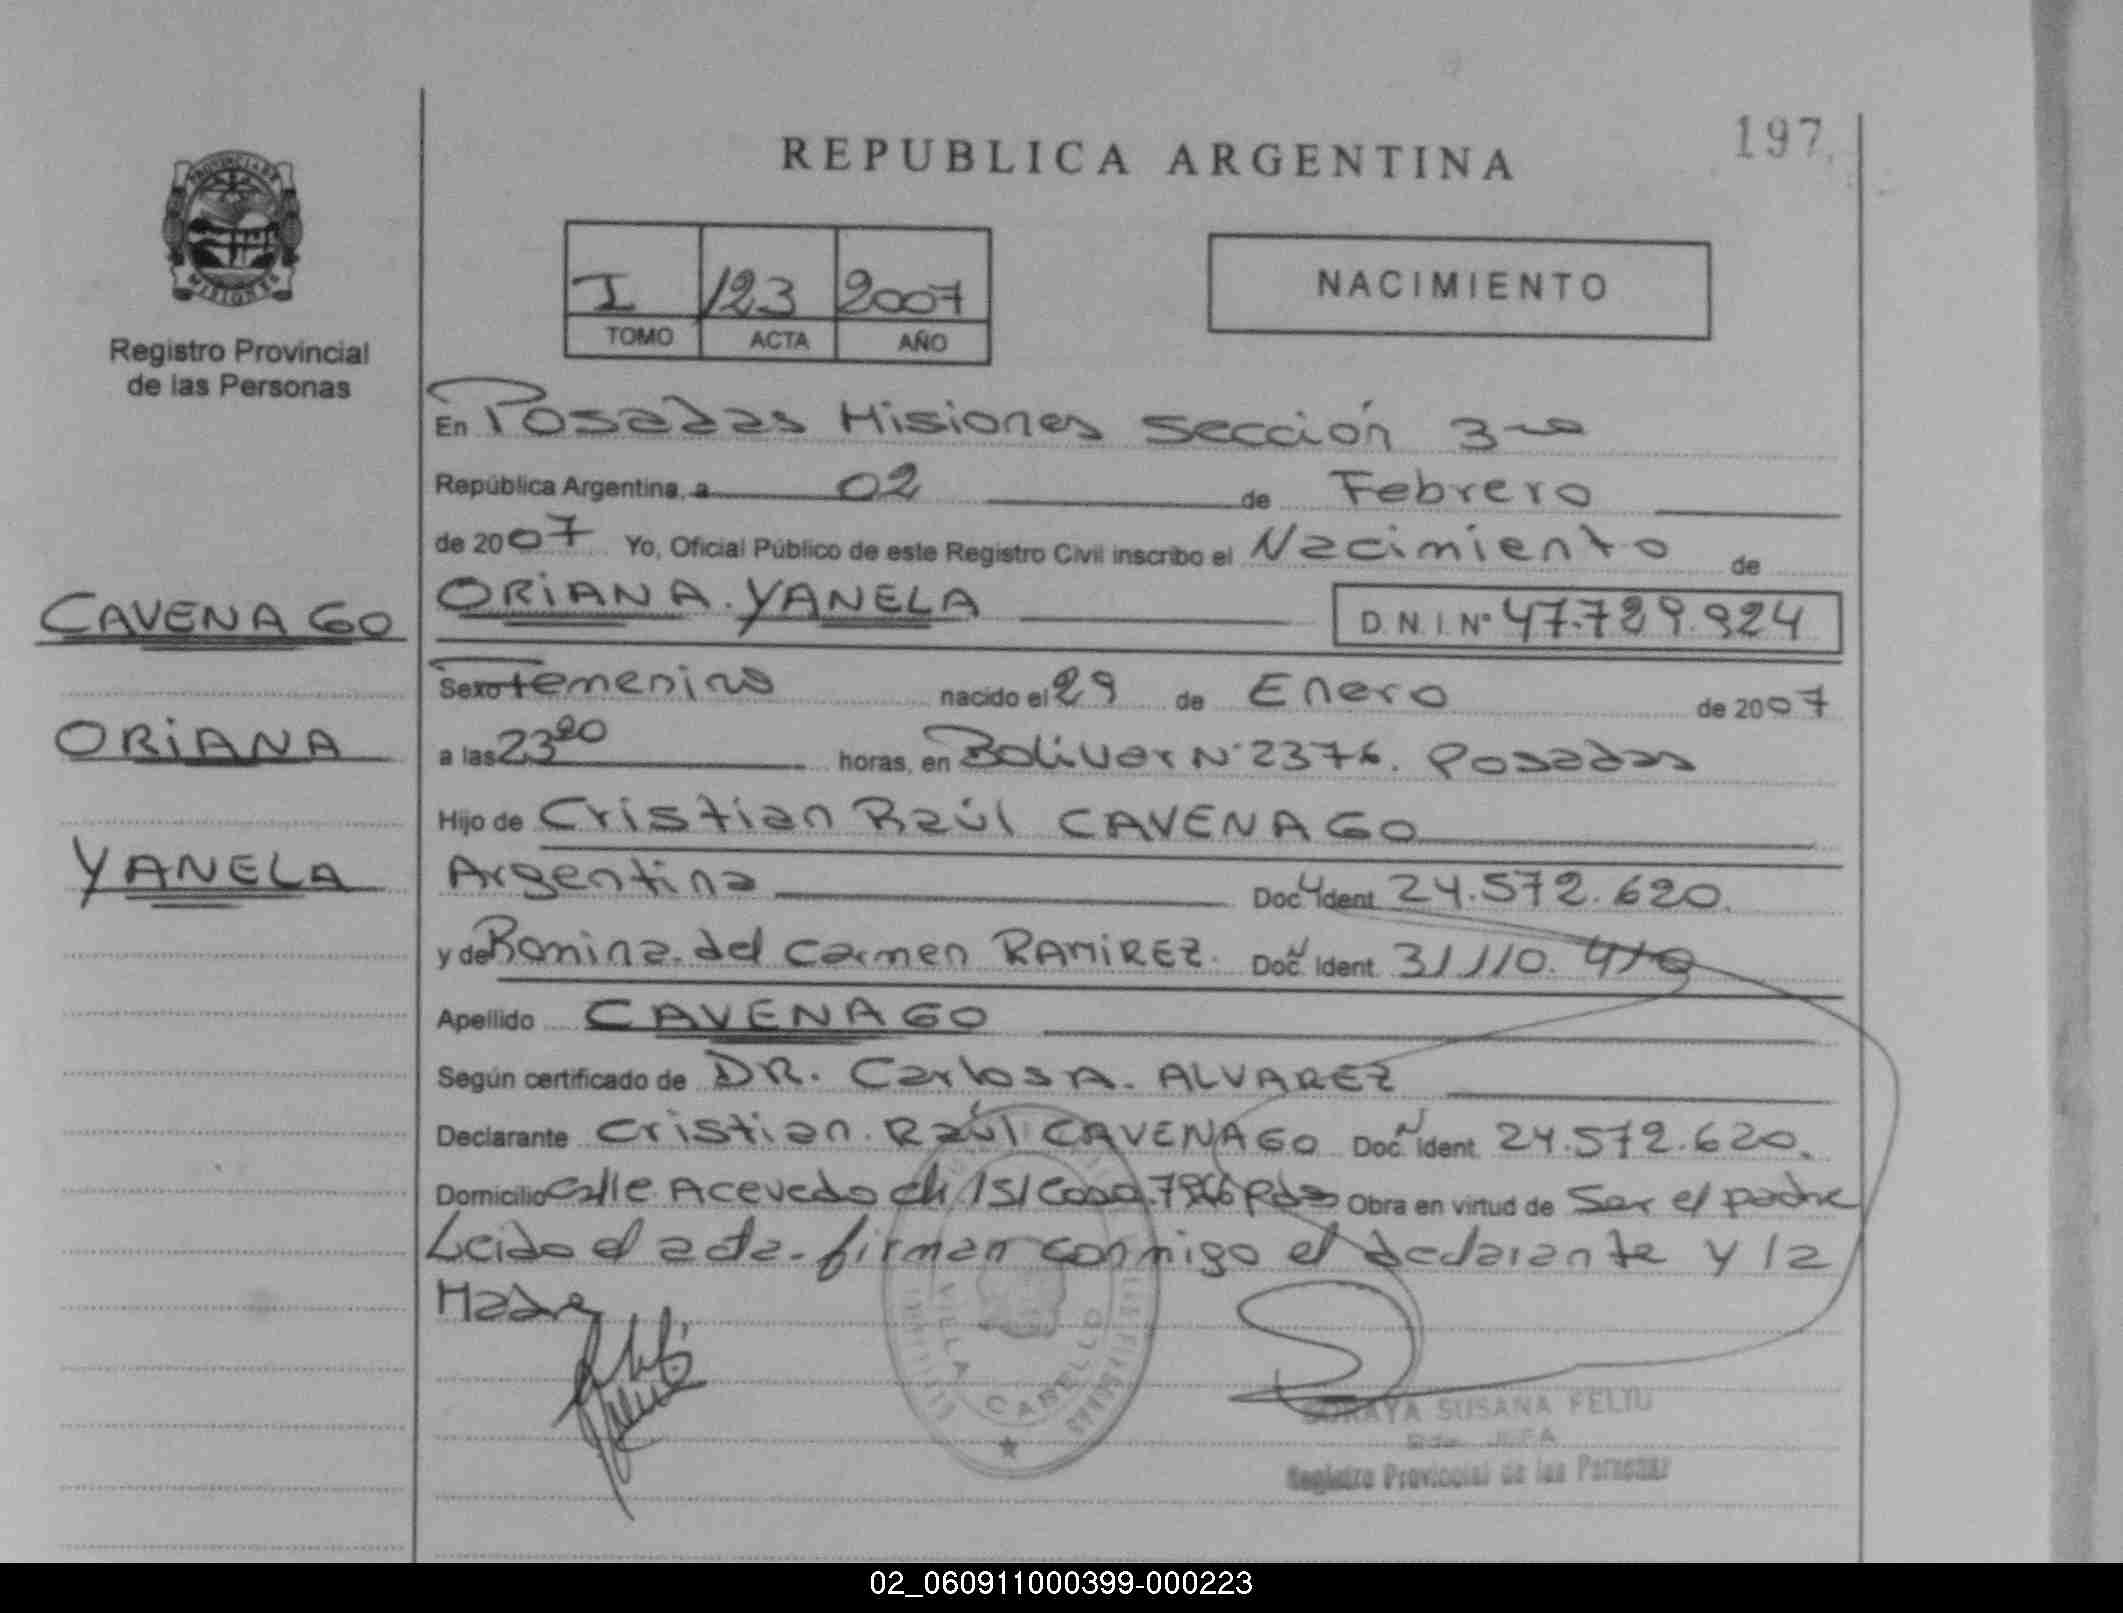 197
REPUBLICA ARGENTINA
PROVINCIA DE
MISIONES
Registro Provincial
de las Personas
I 123 2007
TOMO ACTA AÑO
NACIMIENTO
En Posadas Misiones Sección 3ra
República Argentina, a 02 de Febrero
de 2007 Yo, Oficial Público de este Registro Civil inscribo el Nacimiento de
CAVENAGO
ORIANA YANELA D.N.I. Nº 47.729.924
Sexo Femenino nacido el 29 de Enero de 2007
ORIANA
a las 23 20 horas, en Bolivar Nº 2376. Posadas
Hijo de Cristian Raúl CAVENAGO
YANELA
Argentina Doc. Ident. 24.572.620.
y de Romina del Carmen RAMIREZ. Doc. Ident. 31.110.410
Apellido CAVENAGO
Según certificado de DR. Carlos A. ALVAREZ
Declarante Cristian Raúl CAVENAGO Doc. Ident. 24.572.620.
Domicilio Calle Acevedo ch 151 Casa Pdas Obra en virtud de Ser el padre
Leida el acta firman conmigo el declarante y la
Madre
VILLA CABELLO
SORAYA SUSANA FELIU
JEFA
Registro Provincial de las Personas
02_060911000399-000223